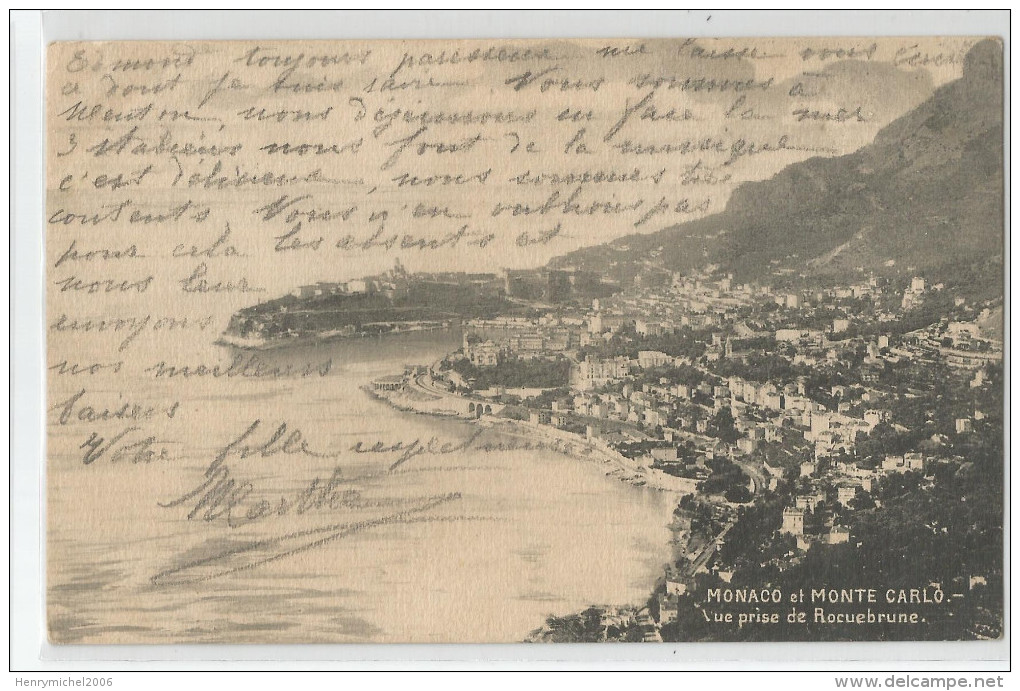 Edmond toujours paresseux me laisse vous écrire
ce dont je suis ravie. Nous sommes à
Menton, nous déjeunons en face la mer
3 italiens nous font de la musique
c'est délicieux, nous sommes très
contents. Nous n'en oublions pas
pour cela les absents et
nous leur
envoyons
nos meilleurs
baisers
Votre fille respectueuse
Marthe
MONACO et MONTE CARLO.-
Vue prise de Rocuebrune.
Henrymichel2006
www.delcampe.net